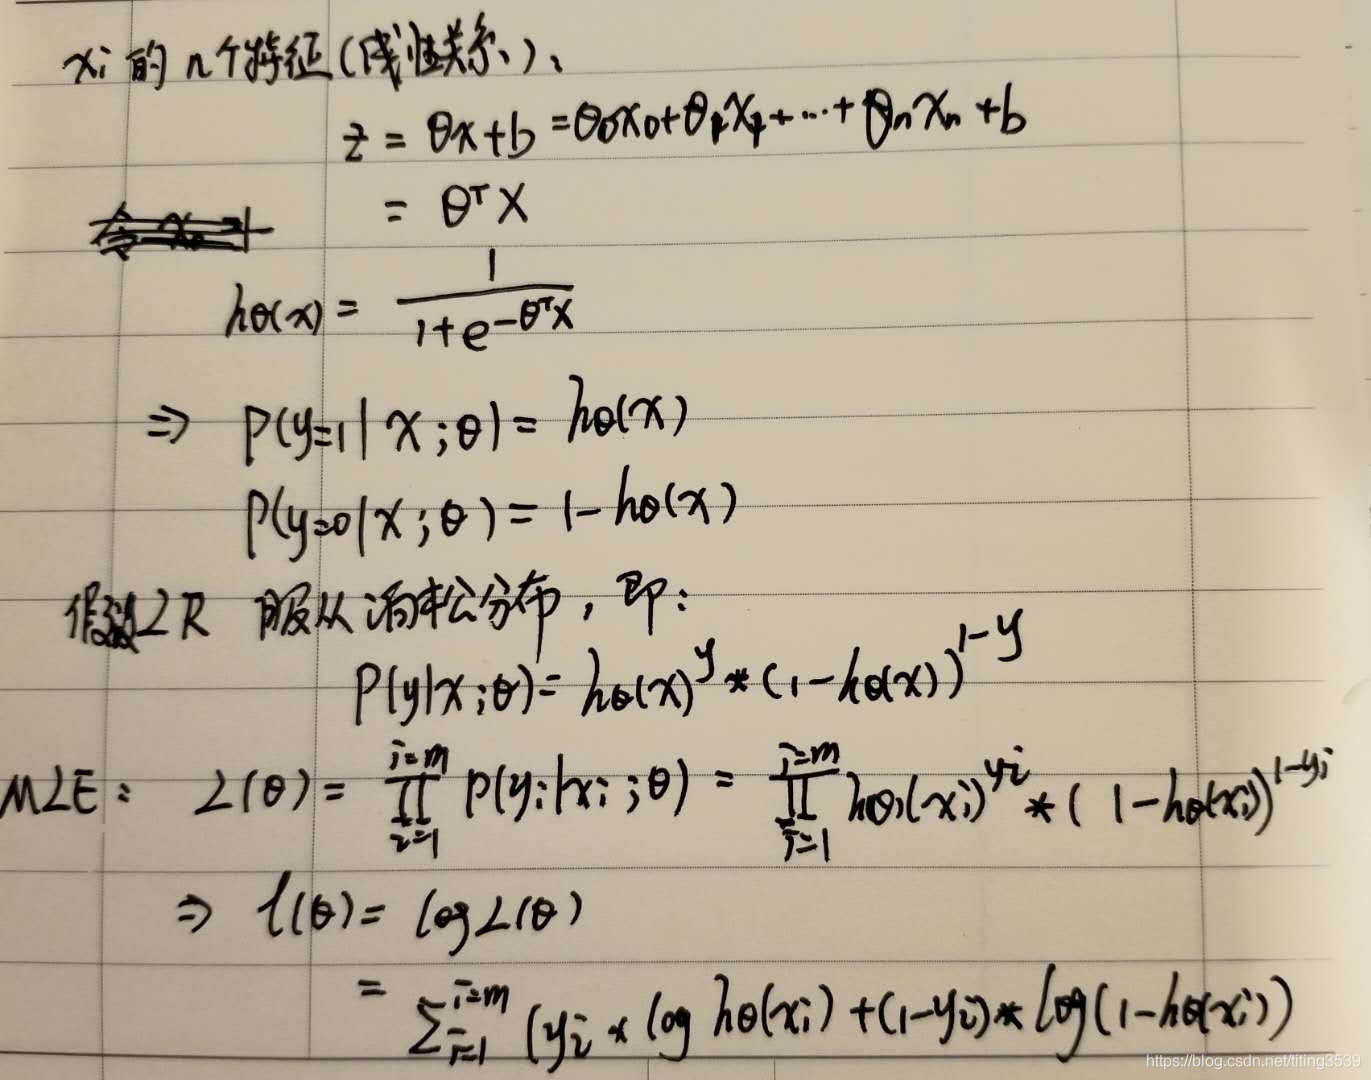 xi 的 n个特征(线性关系、)、
z = θx+b = θ0x0+θ1x1+…+θnxn+b
= θᵀX
hθ(x) = 1 / (1+e^(-θᵀX))
⇒ P(y=1|X;θ) = hθ(x)
P(y=0|X;θ) = 1-hθ(x)
假设LR 服从 泊松分布，即：
P(y|x;θ) = hθ(x)^y * (1-hθ(x))^(1-y)
MLE： L(θ) = ∏_{i=1}^{i=m} P(yi|xi;θ) = ∏_{i=1}^{i=m} hθ(xi)^yi * (1-hθ(xi))^(1-yi)
⇒ l(θ) = log L(θ)
= Σ_{i=1}^{i=m} (yi * log hθ(xi) + (1-yi) * log(1-hθ(xi))
https://blog.csdn.net/titing3539